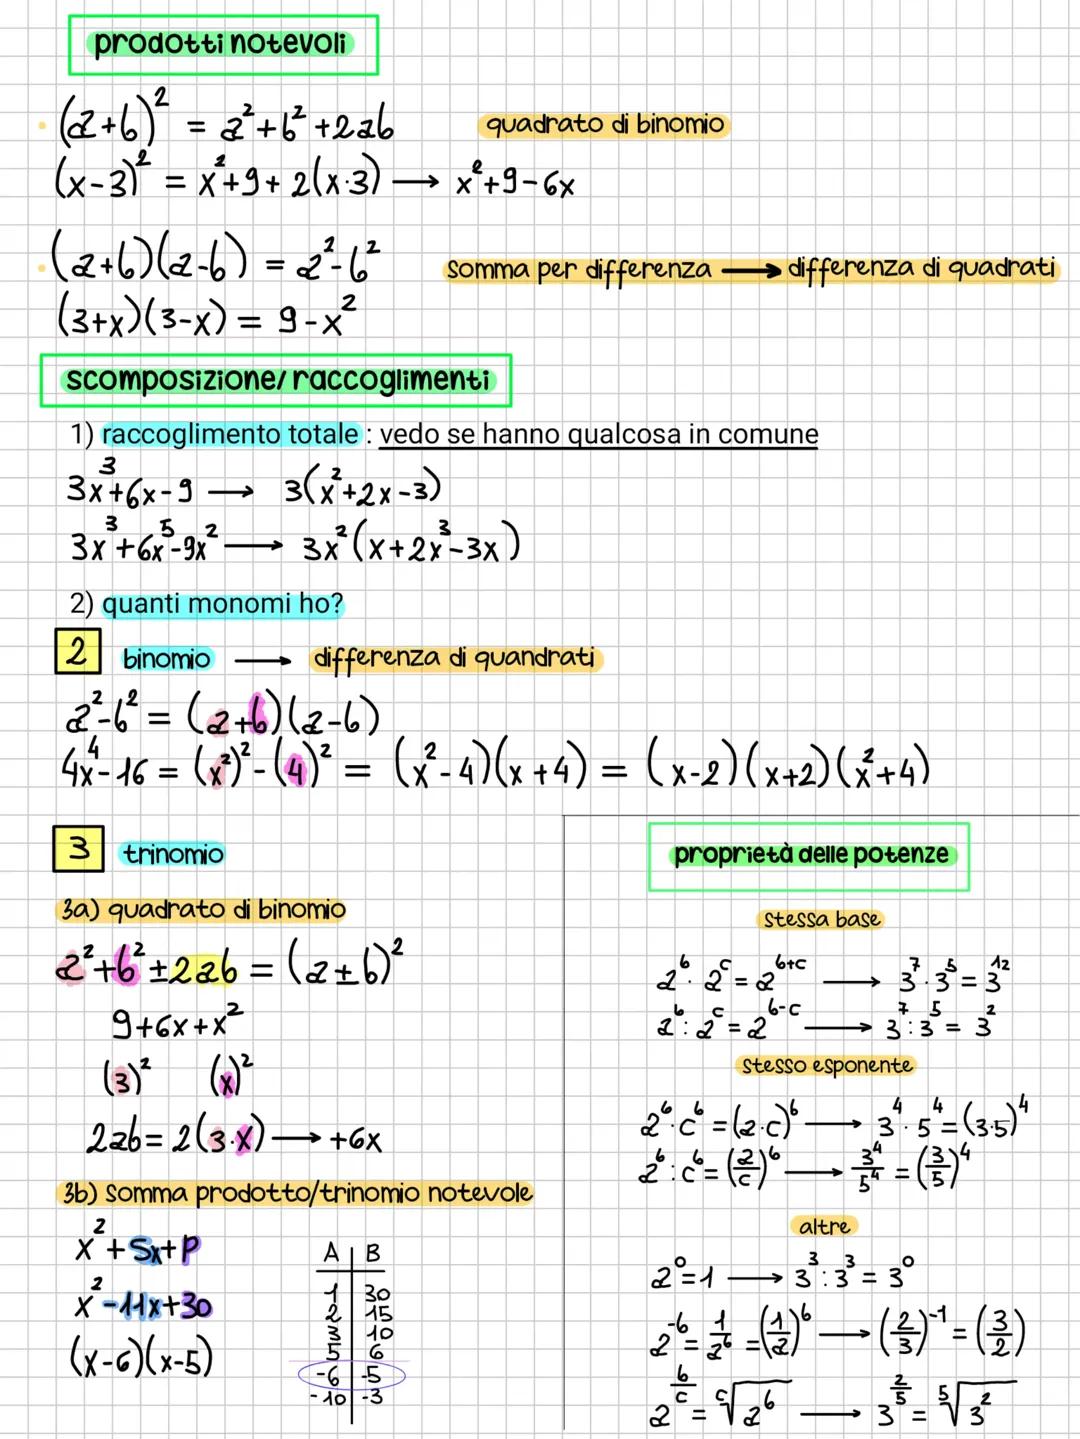 prodotti notevoli
(a+b)² = a²+b²+2ab quadrato di binomio
(x-3)² = x²+9+2(x·3) → x²+9-6x
(a+b)(a-b) = a²-b² somma per differenza → differenza di quadrati
(3+x)(3-x) = 9-x²
scomposizione/raccoglimenti
1) raccoglimento totale : vedo se hanno qualcosa in comune
3x³+6x-9 → 3(x²+2x-3)
3x³+6x⁵-9x² → 3x²(x+2x³-3x)
2) quanti monomi ho?
2 binomio → differenza di quandrati
a²-b² = (a+b)(a-b)
4x⁴-16 = (x²)²-(4)² = (x²-4)(x+4) = (x-2)(x+2)(x²+4)
3 trinomio
3a) quadrato di binomio
a²+b²±2ab = (a±b)²
9+6x+x²
(3)² (x)²
2ab = 2(3·x) → +6x
3b) somma prodotto/trinomio notevole
x²+Sx+P
x²-11x+30
(x-6)(x-5)
A B
1 30
2 15
3 10
5 6
-6 -5
-10 -3
proprietà delle potenze
stessa base
a^b · a^c = a^(b+c) → 3⁷·3⁵ = 3¹²
a^b : a^c = a^(b-c) → 3⁷:3⁵ = 3²
stesso esponente
a^b · c^b = (a·c)^b → 3⁴·5⁴ = (3·5)⁴
a^b : c^b = (a/c)^b → 3⁴/5⁴ = (3/5)⁴
altre
a⁰=1 → 3³:3³ = 3⁰
a^-b = 1/a^b = (1/a)^b → (2/3)^-1 = (3/2)
a^(b/c) = ᶜ√a^b → 3^(2/5) = ⁵√3²